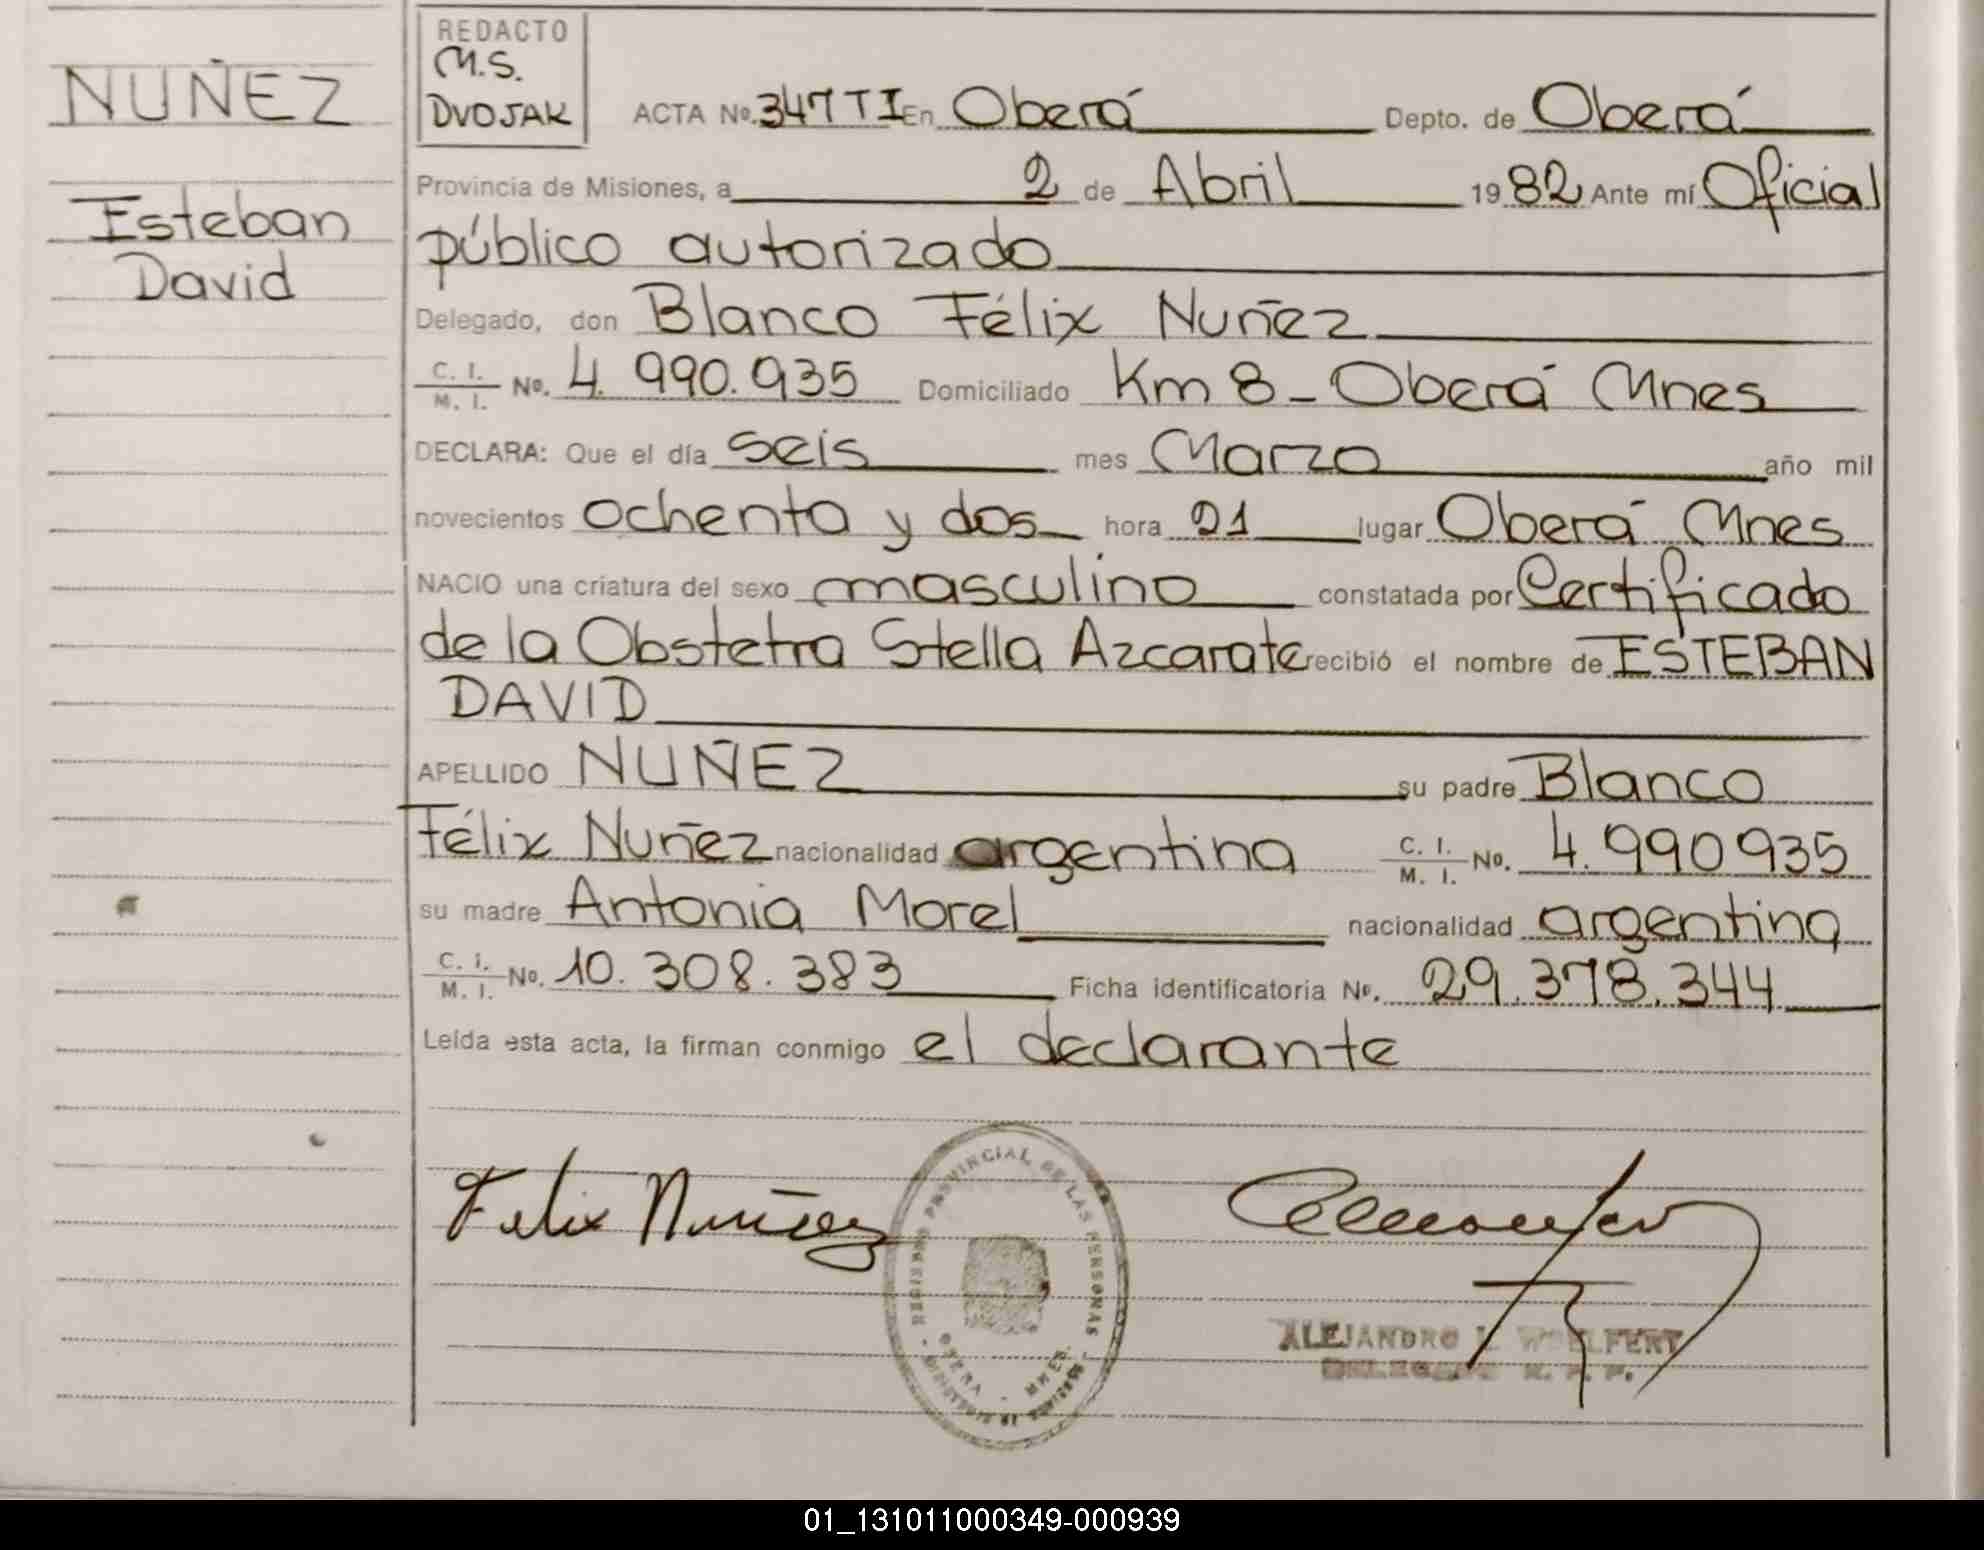 NUÑEZ
Esteban
David
REDACTO
M.S.
DVOJAK
ACTA Nº. 347 T I En Oberá Depto. de Oberá
Provincia de Misiones, a 2 de Abril 1982 Ante mí Oficial
público autorizado
Delegado, don Blanco Félix Nuñez
C. I. / M. I. Nº. 4.990.935 Domiciliado Km 8 - Oberá Mnes
DECLARA: Que el día seis mes Marzo año mil
novecientos ochenta y dos hora 21 lugar Oberá Mnes
NACIO una criatura del sexo masculino constatada por Certificado
de la Obstetra Stella Azcarate recibió el nombre de ESTEBAN
DAVID
APELLIDO NUÑEZ su padre Blanco
Félix Nuñez nacionalidad argentina C. I. / M. I. Nº. 4.990935
su madre Antonia Morel nacionalidad argentina
C. I. / M. I. Nº. 10.308.383 Ficha identificatoria Nº. 29.378.344
Leída esta acta, la firman conmigo el declarante
Felix Nuñez
REGISTRO PROVINCIAL DE LAS PERSONAS
OBERA - MNES.
ALEJANDRO L. WOELFERT
DELEGADO R. P. P.
01_131011000349-000939